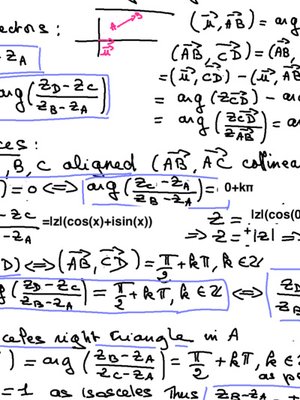 (μ⃗, AB⃗) = arg
ectors :
(AB⃗, CD⃗) = (AB,
- ZA
= (μ⃗, CD⃗) - (μ⃗, AB
arg(ZD-ZC/ZB-ZA)
= arg(ZCD⃗) - ar
= arg(ZCD⃗/ZAB⃗) = a
ces :
, B, C aligned (AB⃗, AC⃗ colline
) = 0 <=> arg(ZC-ZA/ZB-ZA) = 0+kπ
=|z|(cos(x)+isin(x))
Z = |z|(cos(0
- ZA
=> Z = ±|z| =>
D) <=> (AB⃗, CD⃗) = π/2 + kπ, k∈Z
g(ZD-ZC/ZB-ZA) = π/2 + kπ, k∈Z <=> ZD
ZB
sceles right triangle in A
) = arg(ZB-ZA/ZC-ZA) = π/2 + kπ, k∈
as p
= 1 as isosceles Thus ZB-ZA